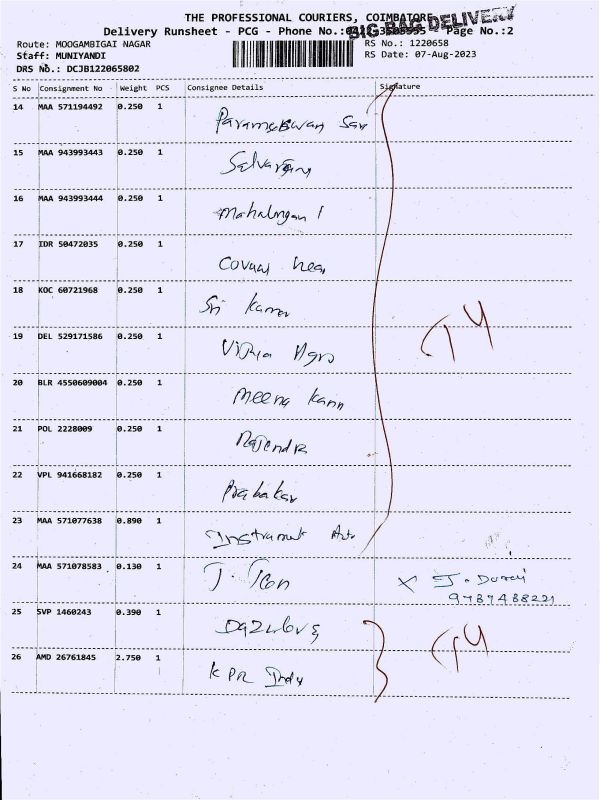 THE PROFESSIONAL COURIERS, COIMBATORE
BIG BAG DELIVERY
Delivery Runsheet - PCG - Phone No.: Page No.:2
Route: MOOGAMBIGAI NAGAR
RS No.: 1220658
Staff: MUNIYANDI
RS Date: 07-Aug-2023
DRS No.: DCJB122065802
S No Consignment No Weight PCS Consignee Details Signature
14 MAA 571194492 0.250 1 Parameswaran
15 MAA 943993443 0.250 1
16 MAA 943993444 0.250 1
17 IDR 50472035 0.250 1
18 KOC 60721968 0.250 1 Sri
19 DEL 529171586 0.250 1 Vidya Agro
20 BLR 4550609004 0.250 1 Meena Kann
21 POL 2228009 0.250 1 Rajendra
22 VPL 941668182 0.250 1 Prabakar
23 MAA 571077638 0.890 1 Instrument
24 MAA 571078583 0.130 1 J. Icon X J. Durai
9787488221
25 SVP 1460243 0.390 1
26 AMD 26761845 2.750 1 KPR Indu